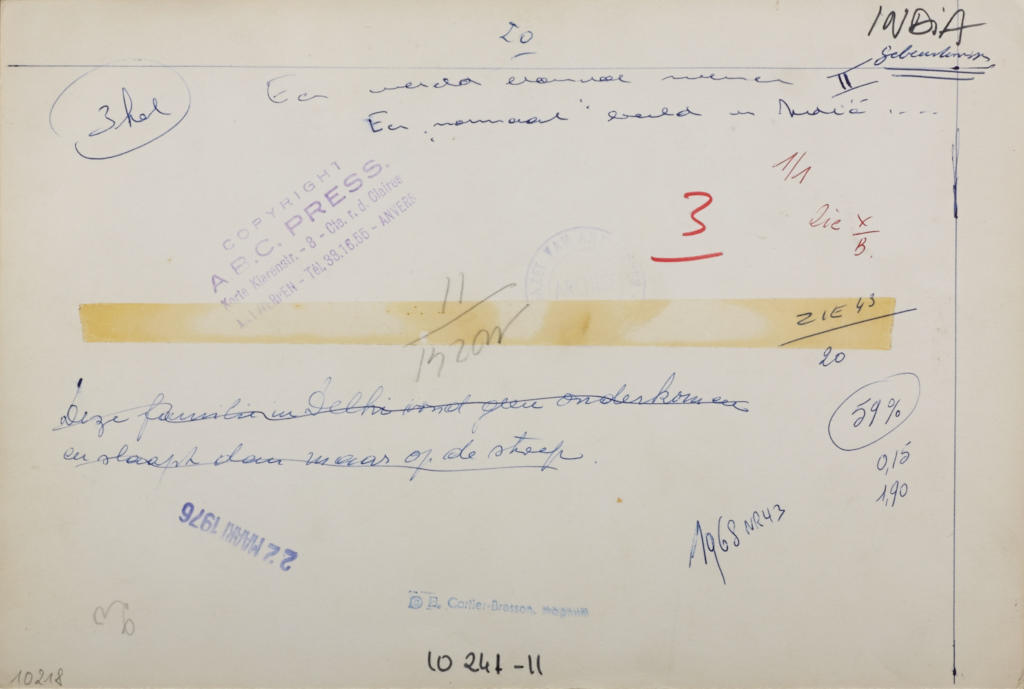 20
INDIA
Gebeurtenissen
II
3 kol
Een
Een "normaal" beeld in Indië ....
COPYRIGHT
A.B.C. PRESS.
Korte Klarenstr. - 8 - Cte. r. d. Claires
ANTWERPEN - Tél. 33.16.55 - ANVERS
1/1
3
Zie X
B.
11
ZIE 43
20
Deze familie in Delhi vond geen onderkomen
en slaapt dan maar op de stoep.
59%
0,15
1,90
22 MAART 1976
1968 NR 43
© H. Cartier-Bresson, magnum
10 247-11
10218